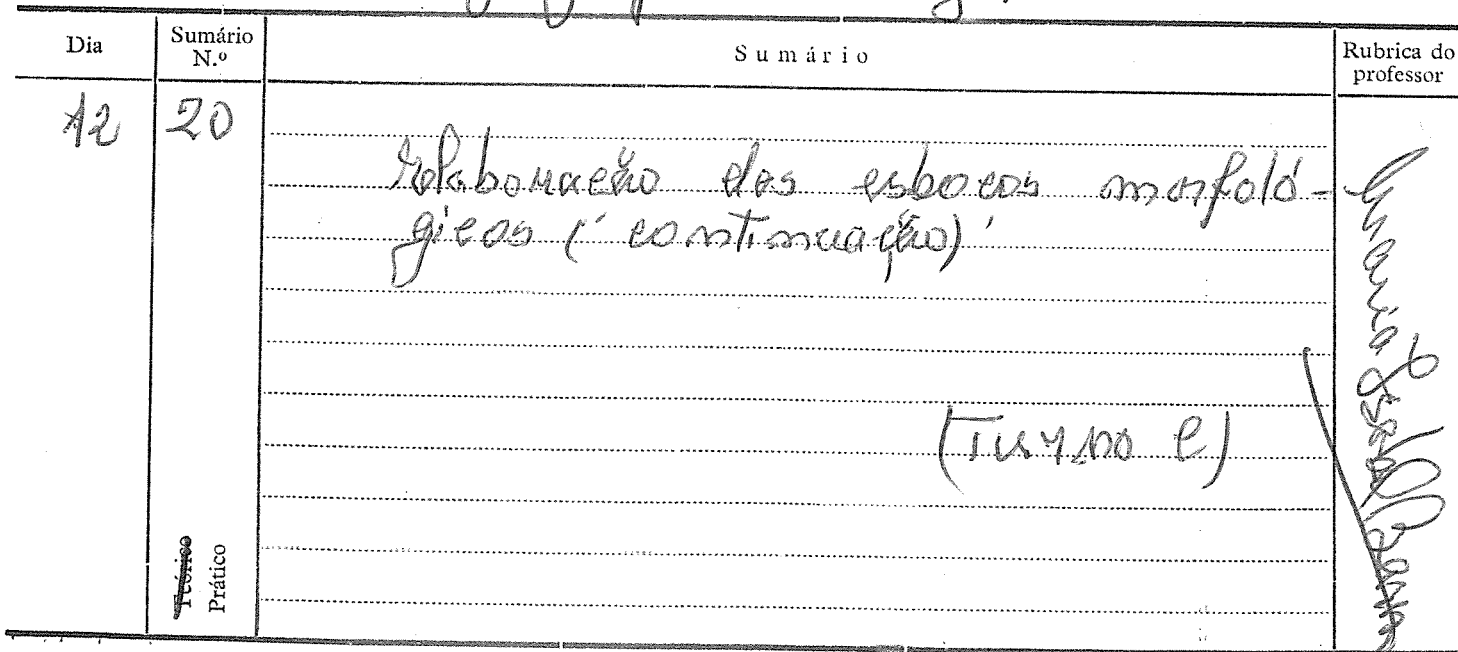 Dia
Sumário N.º
Sumário
Rubrica do professor
12
20
Elaboração dos esboços morfoló-
gicos (continuação)
(Turno C)
Teórico
Prático
Maria Isabel